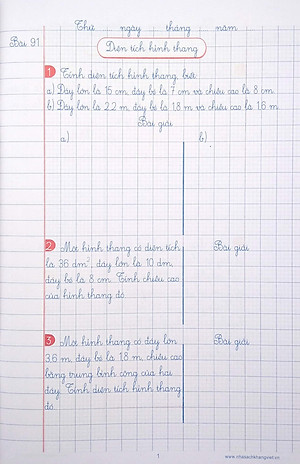 Thứ ngày tháng năm
Bài 91
Diện tích hình thang
1 Tính diện tích hình thang, biết:
a) Đáy lớn là 15 cm, đáy bé là 7 cm và chiều cao là 8 cm.
b) Đáy lớn là 2,2 m, đáy bé là 1,8 m và chiều cao là 1,6 m.
Bài giải
a) b)
2 Một hình thang có diện tích Bài giải
là 36 dm², đáy lớn là 10 dm,
đáy bé là 8 cm. Tính chiều cao
của hình thang đó.
3 Một hình thang có đáy lớn Bài giải
3,6 m, đáy bé là 1,8 m, chiều cao
bằng trung bình cộng của hai
đáy. Tính diện tích hình thang
đó.
1